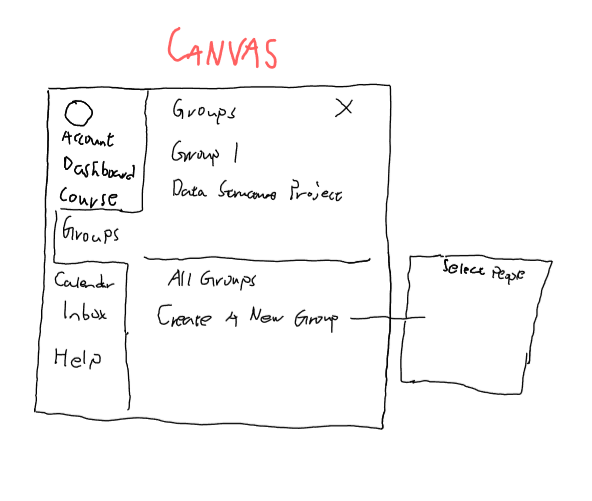 CANVAS
Account
Dashboard
Course
Groups
Calendar
Inbox
Help
Groups X
Group 1
Data Project
All Groups
Create A New Group
Select People